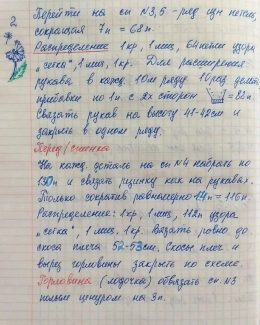 2
Перейти на сп N3,5 - ряд изн петель,
сокращая 7п = 68п.
Распределение 1кр, 1изн, 64петли узора
"сетка", 1изн, 1кр. Для расширения
рукава в кажд. 10м ряду 10раз делать
прибавки по 1п. с 2х сторон = 88п
Связать рукав на высоту 41-42см и
закрыть в одном ряду.
Перед/спинка
На кажд. деталь на сп N4 набрать по
130п и связать рцинку как на рукавах.
Только сократив равномерно 14п = 116п.
Распределение: 1кр, 1изн, 112п узора
"сетка", 1изн, 1кр. Вязать ровно до
скоса плеча 52-53см. Скосы плеч и
вырез горловины закрыть по схеме.
Горловина (лодочка) обвязать сп. N3
полым шнуром на 3п.